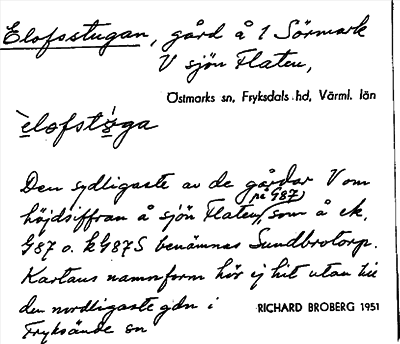 Elofsstugan, gård å 1 Sörmark
V sjön Flaten,
Östmarks sn, Fryksdals hd, Värml. län
èlofstóga
Den sydligaste av de gårdar V om
på G87)
höjdsiffran å sjön Flaten, som å ek.
G87 o. kG87S benämnas Sundbrotorp.
Kartans namnform hör ej hit utan till
den nordligaste gdn i
RICHARD BROBERG 1951
Fryksände sn